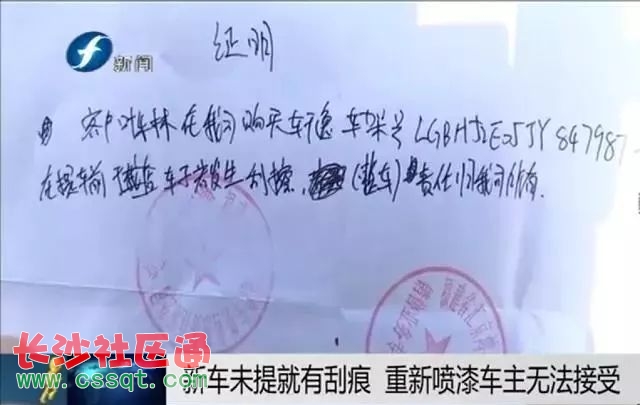 新闻
证明
客户叶林在我司购买车 车架号LGBH52E05JY847987
在提车前 车子发生刮擦,(整车)责任归我司所有.
长沙社区通
www.cssqt.com
新车未提就有刮痕 重新喷漆车主无法接受